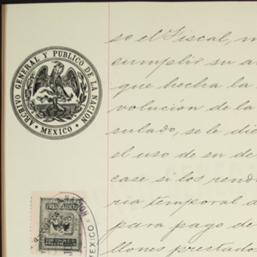 ARCHIVO GENERAL Y PUBLICO DE LA NACION
· MEXICO ·
so el Fiscal,
cumplir su
que hecha la
volución de la
sulado, se le
el uso de su de
case si los
ria temporal
para pago de
llones prestados
MEXICO